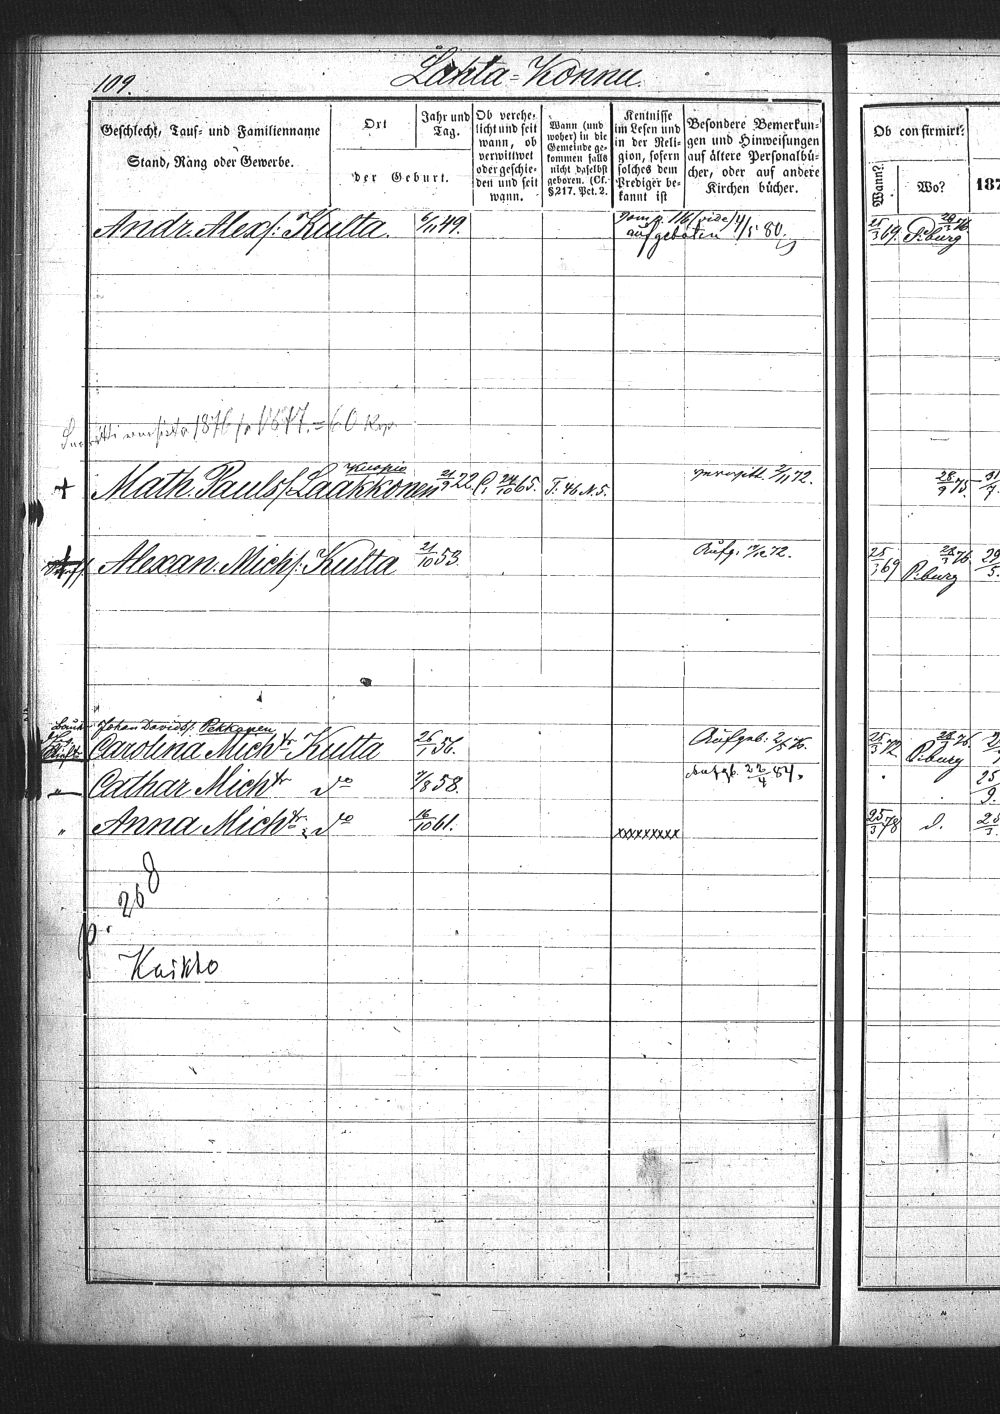 109.
Lahta-Konnu.
Geschlecht, Tauf- und Familienname
Stand, Rang oder Gewerbe.
Ort
der Geburt.
Jahr und
Tag.
Ob verehe-
licht und seit
wann, ob
verwittwet
oder geschie-
den und seit
wann.
Wann (und
woher) in die
Gemeinde ge-
kommen falls
nicht daselbst
geboren. (Cf.
§. 217. Pct. 2.
Kentnisse
im Lesen und
in der Reli-
gion, sofern
solches dem
Prediger be-
kannt ist
Besondere Bemerkun-
gen und Hinweisungen
auf ältere Personalbü-
cher, oder auf andere
Kirchen bücher.
Ob confirmirt?
Wann?
Wo?
187
Andr. Alexs: Kulta. 6/11 49. (vide) aufgeboten 4/5 80. 25/3 69. P:burg
1876 1877. = 60 Kop
Kuopio
+ Math. Pauls: Laakkonen 21/9 22. 24/10 65. T. 46 N. 5. 2/11 72. 28/9 75.
Alexan. Michs: Kulta 21/10 53. Aufg. 72. 25/3 69 P:burg 76. 29/3.
Johan Davids: Pekkanen
Carolina Micht: Kulta 26/1 56. Aufgeb. 2/5 76. 25/3 72. P:burg
Cathar Micht: do 7/8 58. Aufgb. 22/4 84. 25/9.
" Anna Micht: do 16/10 61. xxxxxxxx 25/3 78 d. 25/3.
p. 268
Kaikko